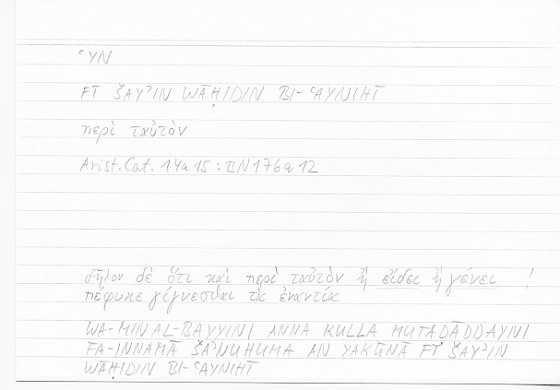 ʿYN
FĪ ŠAYʾIN WĀḤIDIN BI-ʿAYNIHĪ
περὶ ταὐτὸν
Arist. Cat. 14a15 : BN176a12
δῆλον δὲ ὅτι καὶ περὶ ταὐτὸν ἢ εἴδει ἢ γένει !
πέφυκε γίγνεσθαι τὰ ἐναντία
WA-MIN AL-BAYYINI ANNA KULLA MUTAḌĀDDAYNI
FA-INNAMĀ ŠAʾNUHUMA AN YAKŪNĀ FĪ ŠAYʾIN
WĀḤIDIN BI-ʿAYNIHĪ